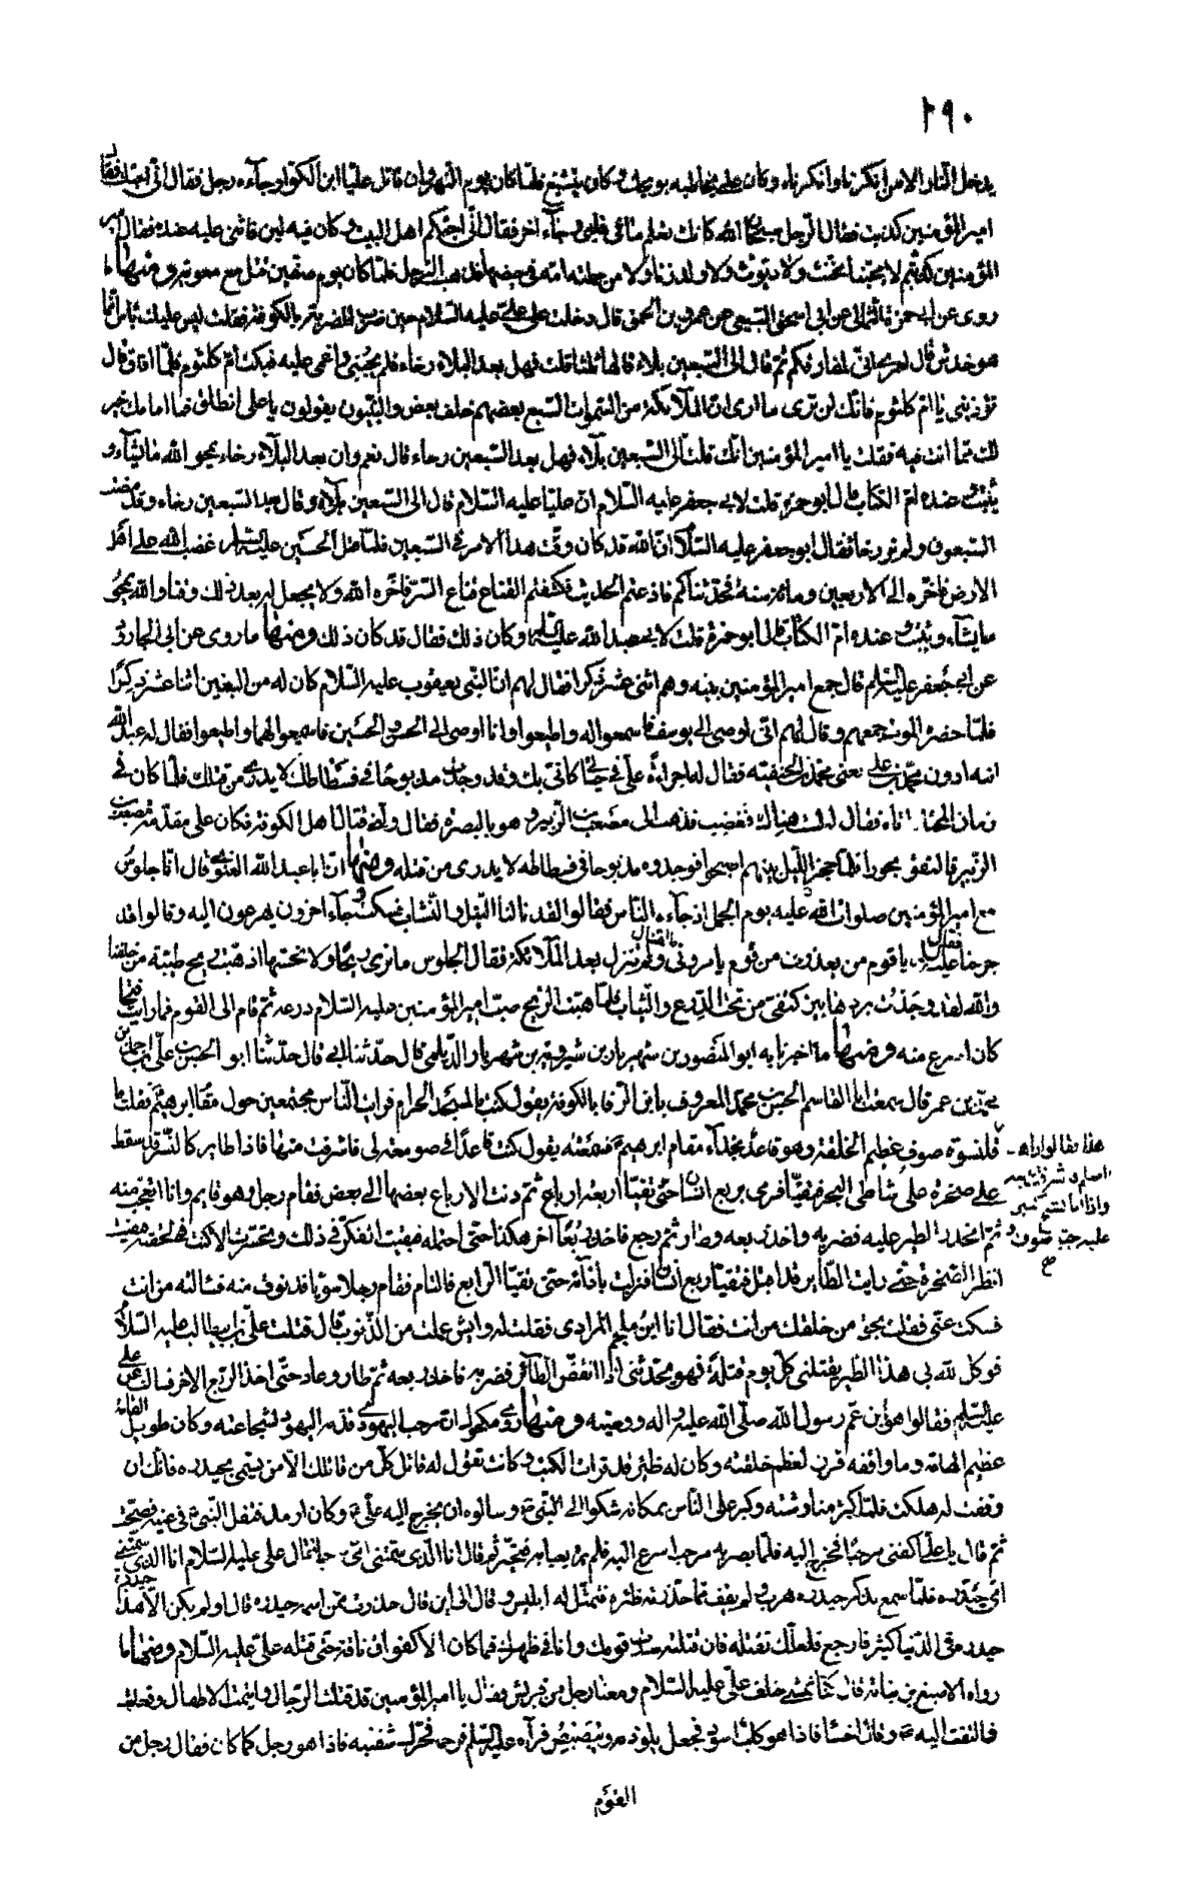 ٢٩٠
يدخل النار الا من انكرنا وانكرناه وكان علي يخاطبه بويحك وكان يتشيع فلما كان يوم النهروان قاتل عليا ابن الكوا وجآءه رجل فقال اني احبك فقال
امير المؤمنين كذبت فقال الرجل سبحان الله كانك تعلم ما في قلبي وجآء آخر فقال اني احبكم اهل البيت وكان فيه لين فاثنى عليه عنده فقال امير
المؤمنين كذبتم لا يحبنا مخنث ولا ديوث ولا ولد زنا ولا من حملته امه في حيضها فذهب الرجل فلما كان يوم صفين قتل مع معوية ومنها ما
روى عن ابي حمزة الثمالي عن ابي اسحق السبيعي عن عمرو بن الحمق قال دخلت على علي عليه السلام حين ضرب الضربة بالكوفة فقلت ليس عليك باس انما
هو خدش قال لعمري اني لمفارقكم ثم قال الى السبعين بلاء قالها ثلثا قلت فهل بعد البلاء رخاء فلم يجبني واغمي عليه فبكت ام كلثوم فلما افاق قال
لا تؤذيني يا ام كلثوم فانك لن ترى ما ارى ان الملآئكة من السموات السبع بعضهم خلف بعض والنبيون يقولون يا علي انطلق فما امامك خير
لك مما انت فيه فقلت يا امير المؤمنين انك قلت الى السبعين بلآء فهل بعد السبعين رخاء قال نعم وان بعد البلآء رخاء يمحو الله ما يشآء و
يثبت وعنده ام الكتاب قال ابو حمزة قلت لابي جعفر عليه السلام ان عليا عليه السلام قال الى السبعين بلآء وقال بعد السبعين رخاء وقد مضت
السبعون ولم نر رخا فقال ابو جعفر عليه السلام ان الله قد كان وقت هذا الامر في السبعين فلما قتل الحسين عليه السلام غضب الله على اهل
الارض فاخره الى الاربعين ومائة سنة فحدثناكم فاذعتم الحديث فكشفتم القناع قناع السر فاخره الله ولا يجعل له بعد ذلك وقتا والله يمحو
ما يشآء ويثبت وعنده ام الكتاب قال ابو حمزة قلت لابي عبد الله عليه السلام وكان ذلك فقال قد كان ذلك ومنها ما روى عن ابي الجارود
عن ابي جعفر عليه السلم قال جمع امير المؤمنين بنيه وهم اثنى عشر ذكرا فقال لهم ان النبي يعقوب عليه السلام كان له من البنين اثنا عشر ذكرا
فلما حضره الموت جمعهم وقال لهم اني اوصي الى يوسف فاسمعوا له واطيعوا وانا اوصي الى الحسن والحسين فاسمعوا لهما واطيعوا فقال له عبد الله
ابنه ادون محمد بن علي يعني محمد بن الحنفية فقال له اجراءة علي في حياتي كاني بك وقد وجدت مذبوحا في فسطاطك لا يدرى من قتلك فلما كان في
زمان المختار اتاه فقال لست هناك فغضب فذهب الى مصعب بن الزبير وهو بالبصرة فقال ولني قتال اهل الكوفة فكان على مقدمة مصعب بن
الزبير فالتقوا بحرورا فلما حجز الليل بينهم اصبحوا فوجدوه مذبوحا في فسطاطه لا يدرى من قتله ومنها ان ابا عبد الله الغنوي قال انا جلوس
مع امير المؤمنين صلوات الله عليه يوم الجمل اذ جآءه الناس فقالوا لقد نالنا النبل والنشاب فسكت وجآء اخرون يهرعون اليه وقالوا قد
جرحنا فقال عليه السلم يا قوم من يعذرني من قوم يامروني بالقتال ولم تنزل بعد الملآئكة فقال الجلوس ما نرى ريحا ولا نحسها اذ هبت ريح طيبة من خلفنا
والله لقد وجدت بردها بين كتفي من تحت الدرع والثياب فلما هبت الريح صب امير المؤمنين عليه السلام درعه ثم قام الى القوم فما رايت فتحا
كان اسرع منه ومنها ما اخبرنا به ابو المنصور بن شهريار بن شيرويه بن شهريار الديلمي قال حدثنا ابي قال حدثنا ابو الحسن علي بن احمد بن
يحيى بن عمر قال سمعت ابا القاسم الحسن بن محمد المعروف بابن الرفا بالكوفة يقول كنت بالمسجد الحرام فرايت الناس مجتمعين حول مقام ابرهيم فقلت ما
هذا فقالوا راهب اسلم
قلنسوة صوف عظيم الخلقة وهو قاعد بحذآء مقام ابرهيم فسمعته يقول كنت قاعدا في صومعة لي فاشرفت منها فاذا طاير كالنسر قد سقط
على صخرة على شاطئ البحر فتقيا فرمى بربع انسان حتى تقيا اربعة ارباع ثم دنت الارباع بعضها الى بعض فقام رجل وهو قايم وانا اتعجب منه
ثم انحدر الطير عليه فضربه واخذ ربعه وطار ثم رجع فاخذ ربعا آخر هكذا حتى احتمله فبقيت اتفكر في ذلك وتحسرت الا كنت لحقته فبقيت
انظر الصخرة حتى رايت الطاير قد اقبل فتقيا ربع انسان فنزلت بازآئه حتى تقيا الرابع فالتام فقام رجلا سويا فدنوت منه فسالته من انت
فسكت عني فقلت بحق من خلقك من انت فقال انا ابن ملجم المرادي فقلت له وايش عملت من الذنوب قال قتلت علي بن ابيطالب عليه السلام
فوكل الله بي هذا الطير يقتلني كل يوم قتلة فهو يحدثني اذ انقض الطائر فضربه فاخذ ربعه ثم طار وعاد حتى اخذ الربع الاخر فسالت عن علي
عليه السلم فقالوا هو ابن عم رسول الله صلى الله عليه وآله ووصيه ومنها روى مكحول ان مرحب اليهودي قدمه اليهود لشجاعته وكان طويل القامة
عظيم الهامة وما واقفه قرن لعظم خلقته وكان له ظئر قد قرات الكتب وكانت تقول له قاتل كل من قاتلك الا من يتسمى بحيدرة فانك ان
وقفت له هلكت فلما كثر مناوشته وكبر على الناس بمكانه شكوا الى النبي وسالوه ان يخرج اليه علي وكان ارمد فتفل النبي في عينه فصحت
ثم قال يا علي اكفني مرحبا فخرج اليه فلما بصر به مرحب اسرع اليه فلم يره يعبا به فتحير ثم قال انا الذي سمتني امي مرحبا فقال علي عليه السلام انا الذي سمتني
امي حيدرة فلما سمع بذكر حيدرة هرب ولم يقف مما حذرته ظئره فتمثل له ابليس وقال الى اين قال حذرت ممن اسمه حيدرة قال اولم يكن الا هذا
حيدرة في الدنيا كثير فارجع فلعلك تقتله فان قتلته سدت قومك وانا في ظهرك فما كان الا كفواق ناقة حتى قتله علي عليه السلام ومنها ما
رواه الاصبغ بن نباته قال كنا نمشي خلف علي عليه السلام ومعنا رجل من قريش فقال يا امير المؤمنين قد قتلت الرجال وايتمت الاطفال وفعلت
فالتفت اليه وقال اخسا فاذا هو كلب اسود فجعل يلوذ به ويتبصبص فرآه عليه السلم فرحمه فحرك شفتيه فاذا هو رجل كما كان فقال رجل من
القوم